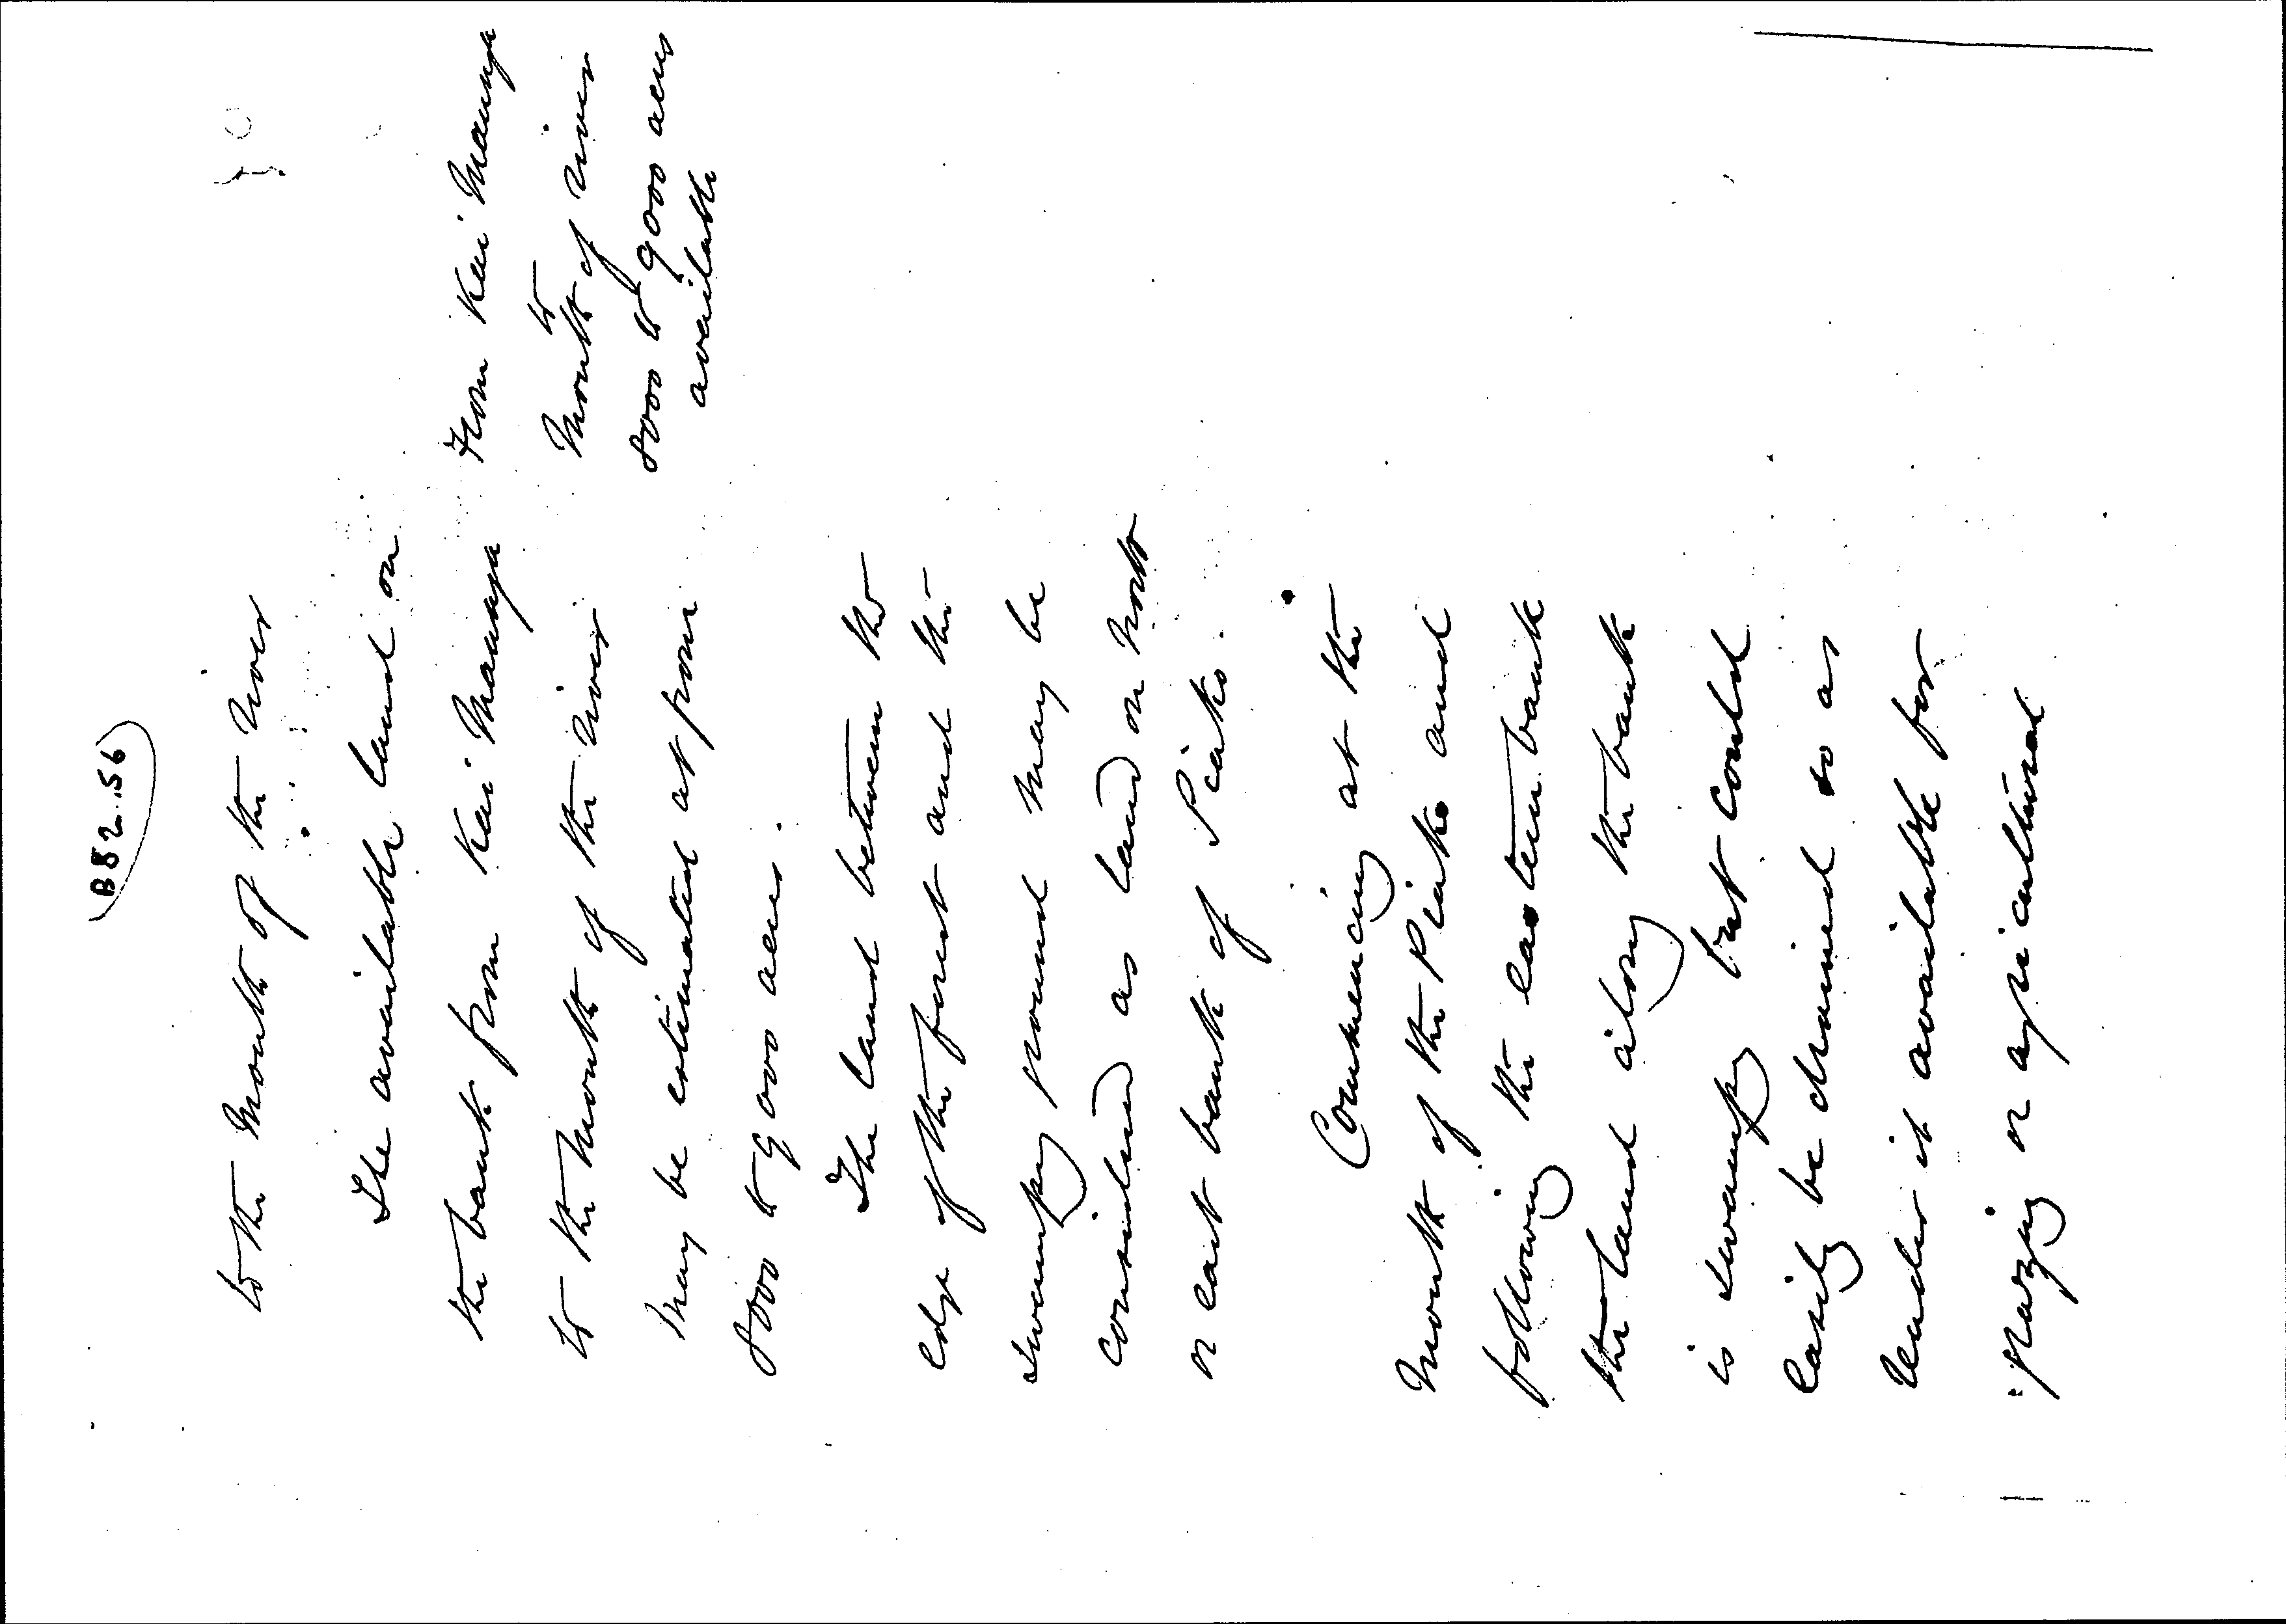 B82.56
to the mouth of the river
The available land on
the bank from Kai Maunga
to the mouth of the river
may be estimated at from
8000 to 9000 acres.
From Kai Maunga
to
Mouth of river
8000 to 9000 acres
available
The land between the
edge of the forest and the
swampy ground may be
considered as land on
or east bank of Piako.
Commencing at the
mouth of the Piako and
following the eastern bank
the land along the bank
is swampy but could
easily be drained so as
render it available for
grazing or agricultural